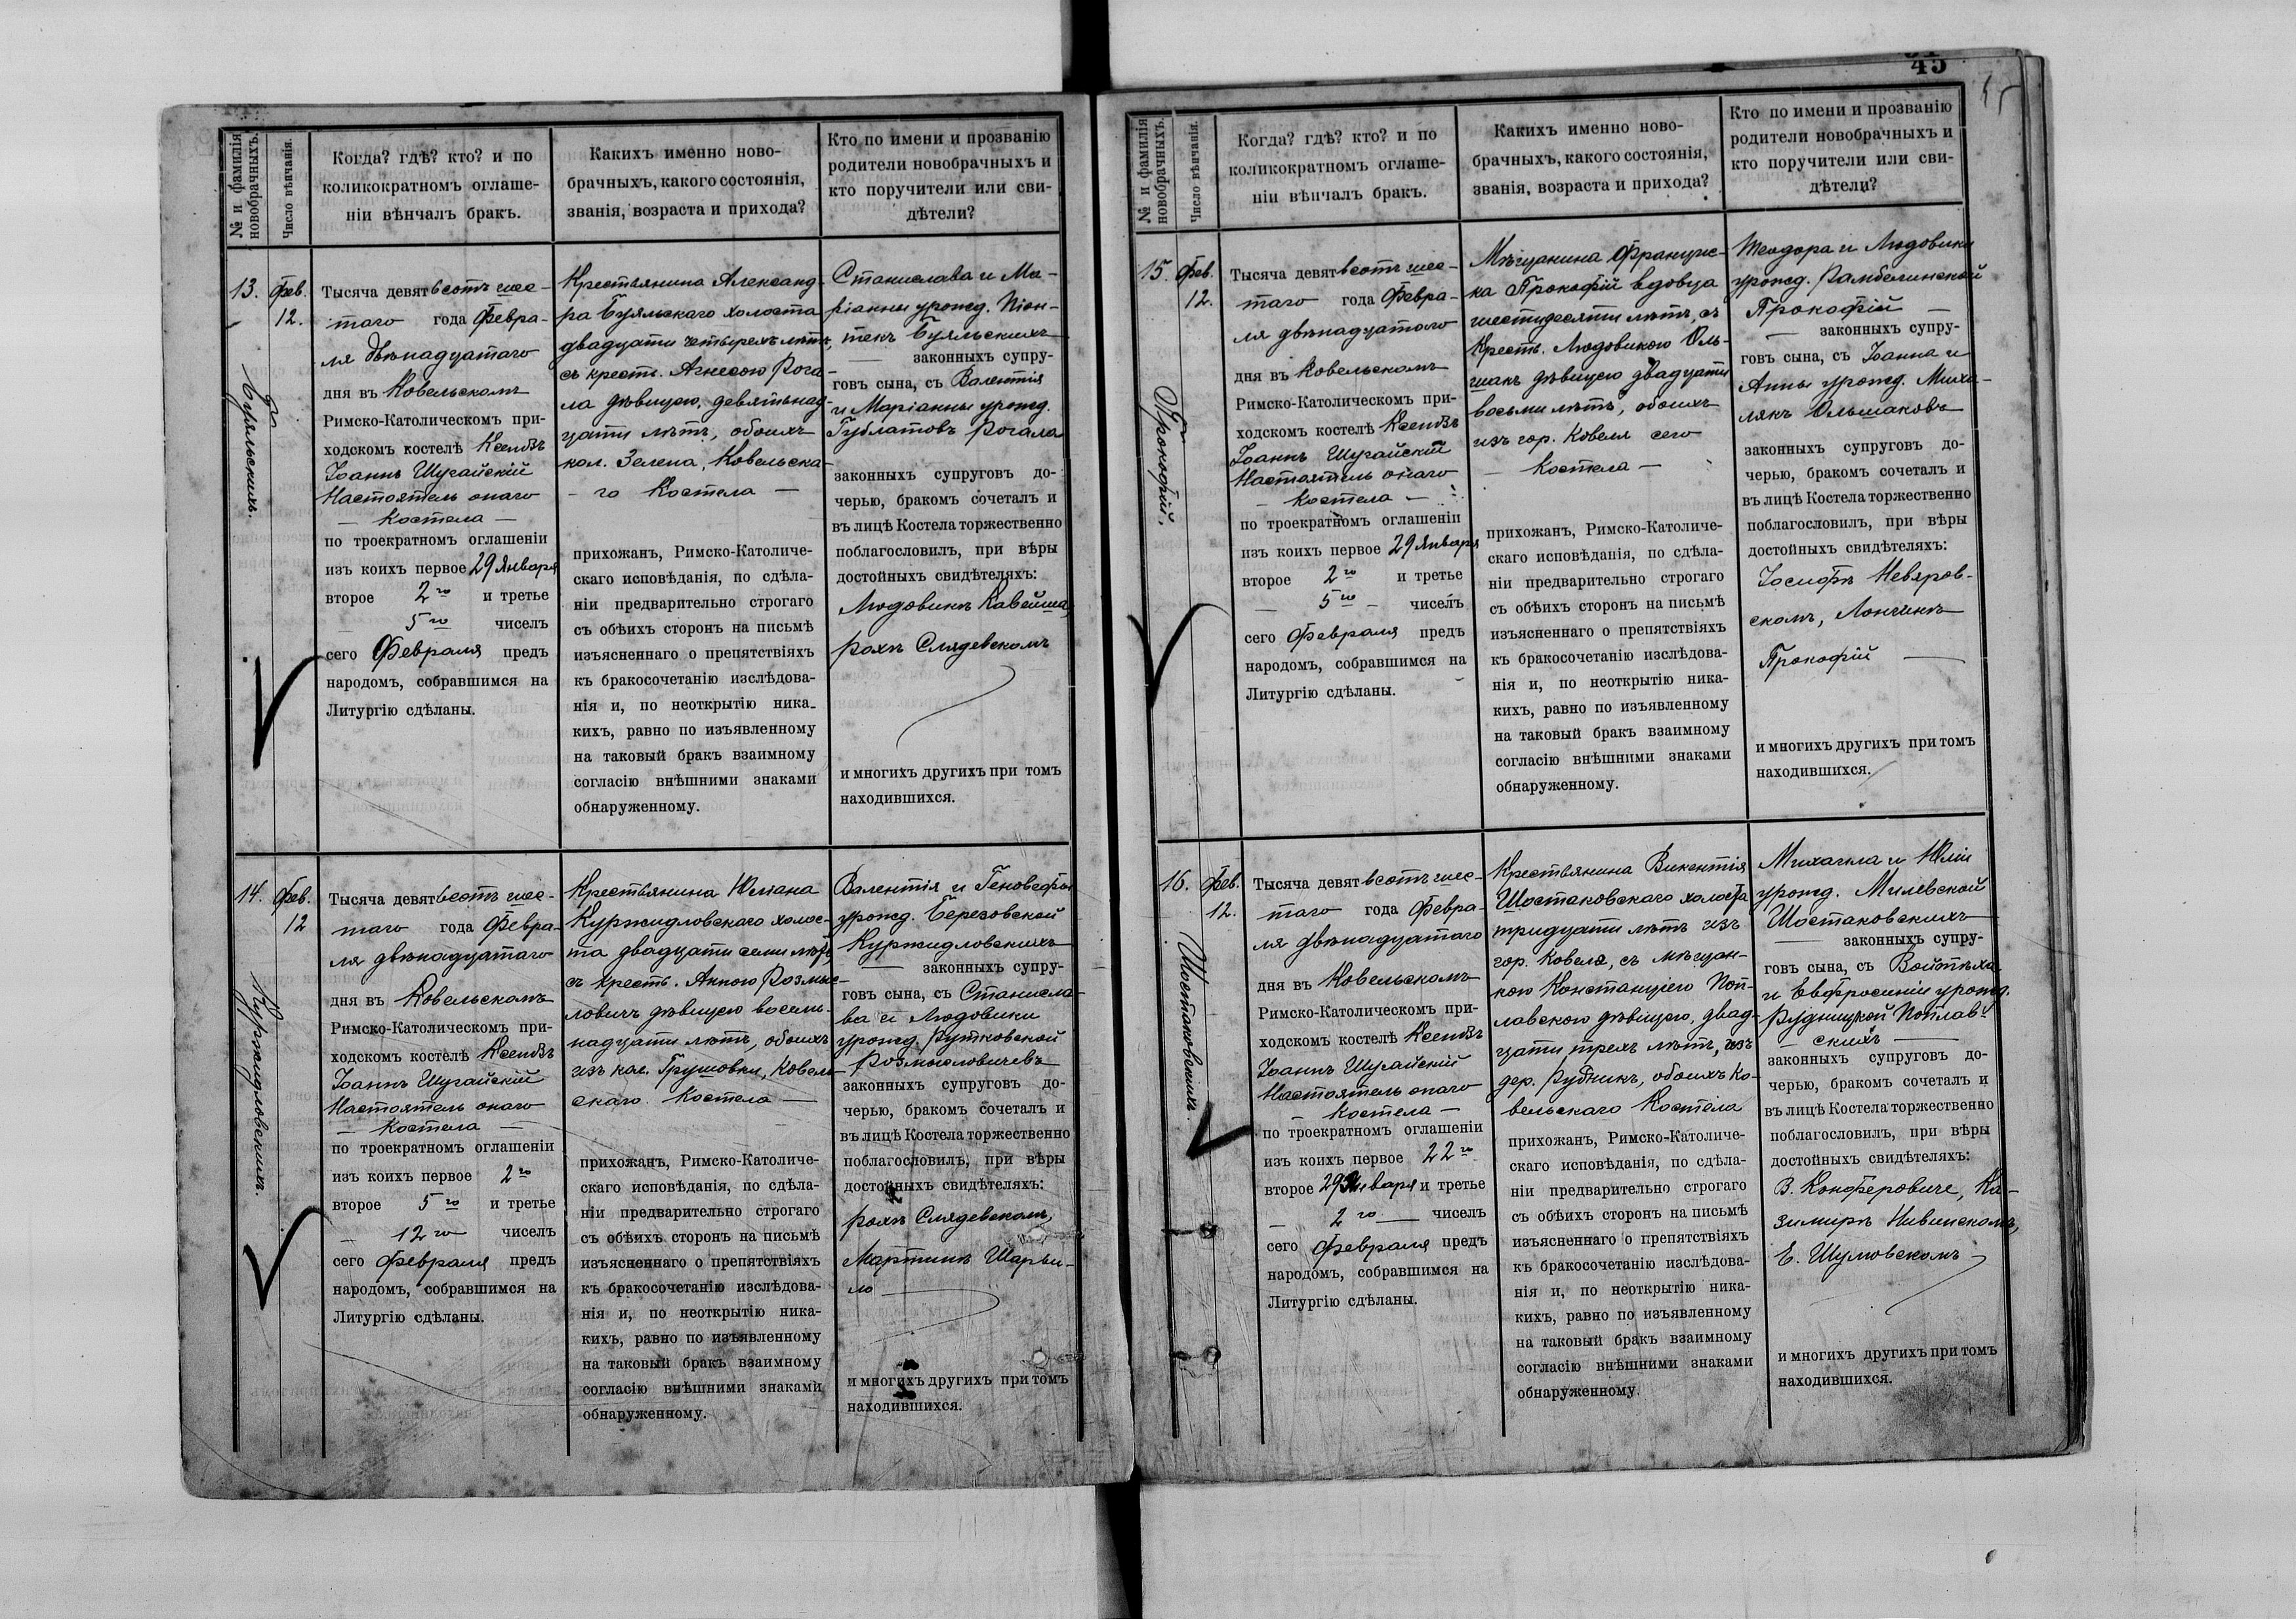 № и фамилія новобрачныхъ.
Число вѣнчанія.
Когда? гдѣ? кто? и по
коликократномъ оглаше-
ніи вѣнчалъ бракъ.
Какихъ именно ново-
брачныхъ, какого состоянія,
званія, возраста и прихода?
Кто по имени и прозванію
родители новобрачныхъ и
кто поручители или сви-
дѣтели?
13.
Фев.
12.
Буяльскихъ.
Тысяча девятьсотъ шес-
таго года Февра-
ля двѣнадцатаго
дня въ Ковельскомъ
Римско-Католическомъ при-
ходскомъ костелѣ Ксендзъ
Іоаннъ Шугайскій
Настоятель онаго
— Костела —
по троекратномъ оглашеніи
изъ коихъ первое 29 Января
второе 2го и третье
5го чиселъ
сего Февраля предъ
народомъ, собравшимся на
Литургію сдѣланы.
Крестьянина Александ-
ра Буяльскаго холоста
двадцати четырехъ лѣтъ,
съ крест. Агнесою Рога-
ла дѣвицею, девятнад-
цати лѣтъ, обоихъ
кол. Зелена, Ковельска-
- го Костела —
прихожанъ, Римско-Католиче-
скаго исповѣданія, по сдѣла-
ніи предварительно строгаго
съ обѣихъ сторонъ на письмѣ
изъясненнаго о препятствіяхъ
къ бракосочетанію изслѣдова-
нія и, по неоткрытію ника-
кихъ, равно по изъявленному
на таковый бракъ взаимному
согласію внѣшними знаками
обнаруженному.
Станислава и Ма-
ріанны урожд. Піон-
текъ Буяльскихъ
— законныхъ супру-
говъ сына, съ Валентія
и Маріанны урожд.
Гублатовъ Рогала
законныхъ супруговъ до-
черью, бракомъ сочеталъ и
въ лицѣ Костела торжественно
поблагословилъ, при вѣры
достойныхъ свидѣтеляхъ:
Людовикъ Кавейша,
Рохъ Слядевскомъ
и многихъ другихъ при томъ
находившихся.
14.
Фев.
12
Куржидловскихъ.
Тысяча девятьсотъ шес-
таго года Февра-
ля двѣнадцатаго
дня въ Ковельскомъ
Римско-Католическомъ при-
ходскомъ костелѣ Ксендзъ
Іоаннъ Шугайскій
Настоятель онаго
— Костела —
по троекратномъ оглашеніи
изъ коихъ первое 2го
второе 5го и третье
— 12го чиселъ
сего Февраля предъ
народомъ, собравшимся на
Литургію сдѣланы.
Крестьянина Юліана
Куржидловскаго холос-
та двадцати семи лѣтъ,
съ крест. Анною Розмыс-
ловичъ дѣвицею восем-
надцати лѣтъ, обоихъ
изъ кол. Грушовки, Ковель-
скаго Костела —
прихожанъ, Римско-Католиче-
скаго исповѣданія, по сдѣла-
ніи предварительно строгаго
съ обѣихъ сторонъ на письмѣ
изъясненнаго о препятствіяхъ
къ бракосочетанію изслѣдова-
нія и, по неоткрытію ника-
кихъ, равно по изъявленному
на таковый бракъ взаимному
согласію внѣшними знаками
обнаруженному.
Валентія и Геновефы
урожд. Березовской
Куржидловскихъ
— законныхъ супру-
говъ сына, съ Станисла-
ва и Людовики
урожд. Рутковской
Розмысловичевъ
законныхъ супруговъ до-
черью, бракомъ сочеталъ и
въ лицѣ Костела торжественно
поблагословилъ, при вѣры
достойныхъ свидѣтеляхъ:
Рохъ Слядевскомъ,
Мартинъ Шарви-
ло
и многихъ другихъ при томъ
находившихся.
45
№ и фамилія новобрачныхъ.
Число вѣнчанія.
Когда? гдѣ? кто? и по
коликократномъ оглаше-
ніи вѣнчалъ бракъ.
Какихъ именно ново-
брачныхъ, какого состоянія,
званія, возраста и прихода?
Кто по имени и прозванію
родители новобрачныхъ и
кто поручители или сви-
дѣтели?
15.
Фев.
12.
Прокофій.
Тысяча девятьсотъ шес-
таго года Февра-
ля двѣнадцатаго
дня въ Ковельскомъ
Римско-Католическомъ при-
ходскомъ костелѣ Ксендзъ
Іоаннъ Шугайскій
Настоятель онаго
— Костела —
по троекратномъ оглашеніи
изъ коихъ первое 29 Января
второе 2го и третье
— 5го — чиселъ
сего Февраля предъ
народомъ, собравшимся на
Литургію сдѣланы.
Мѣщанина Францис-
ка Прокофій вдовца
шестидесяти лѣтъ, съ
Крест. Людовикою Оль-
шакъ дѣвицею двадцати
восьми лѣтъ, обоихъ
изъ гор. Ковеля сего
— Костела —
прихожанъ, Римско-Католиче-
скаго исповѣданія, по сдѣла-
ніи предварительно строгаго
съ обѣихъ сторонъ на письмѣ
изъясненнаго о препятствіяхъ
къ бракосочетанію изслѣдова-
нія и, по неоткрытію ника-
кихъ, равно по изъявленному
на таковый бракъ взаимному
согласію внѣшними знаками
обнаруженному.
Теодора и Людовики
урожд. Рамбелинской
Прокофій —
— законныхъ супру-
говъ сына, съ Іоанна и
Анны урожд. Миха-
лякъ Ольшаковъ
законныхъ супруговъ до-
черью, бракомъ сочеталъ и
въ лицѣ Костела торжественно
поблагословилъ, при вѣры
достойныхъ свидѣтеляхъ:
Іосифъ Невяров-
скомъ, Лонгинъ
Прокофій —
и многихъ другихъ при томъ
находившихся.
16.
Фев.
12.
Шостаковскихъ.
Тысяча девятьсотъ шес-
таго года Февра-
ля двѣнадцатаго
дня въ Ковельскомъ
Римско-Католическомъ при-
ходскомъ костелѣ Ксендзъ
Іоаннъ Шугайскій
Настоятель онаго
— Костела —
по троекратномъ оглашеніи
изъ коихъ первое 22го
второе 29 Января и третье
— 2го — чиселъ
сего Февраля предъ
народомъ, собравшимся на
Литургію сдѣланы.
Крестьянина Викентія
Шостаковскаго холоста
тридцати лѣтъ изъ
гор. Ковеля, съ мѣщан-
кою Констанціею Поп-
лавскою дѣвицею, двад-
цати трехъ лѣтъ, изъ
дер. Рудникъ, обоихъ Ко-
вельскаго Костела
прихожанъ, Римско-Католиче-
скаго исповѣданія, по сдѣла-
ніи предварительно строгаго
съ обѣихъ сторонъ на письмѣ
изъясненнаго о препятствіяхъ
къ бракосочетанію изслѣдова-
нія и, по неоткрытію ника-
кихъ, равно по изъявленному
на таковый бракъ взаимному
согласію внѣшними знаками
обнаруженному.
Михаила и Юліи
урожд. Милевской
Шостаковскихъ
— законныхъ супру-
говъ сына, съ Войтѣха
и Евфросиніи урожд.
Рудницкой Поплав-
— скихъ —
законныхъ супруговъ до-
черью, бракомъ сочеталъ и
въ лицѣ Костела торжественно
поблагословилъ, при вѣры
достойныхъ свидѣтеляхъ:
В. Конферовиче, Ка-
зимиръ Нивинскомъ,
Е. Шумовскомъ
и многихъ другихъ при томъ
находившихся.